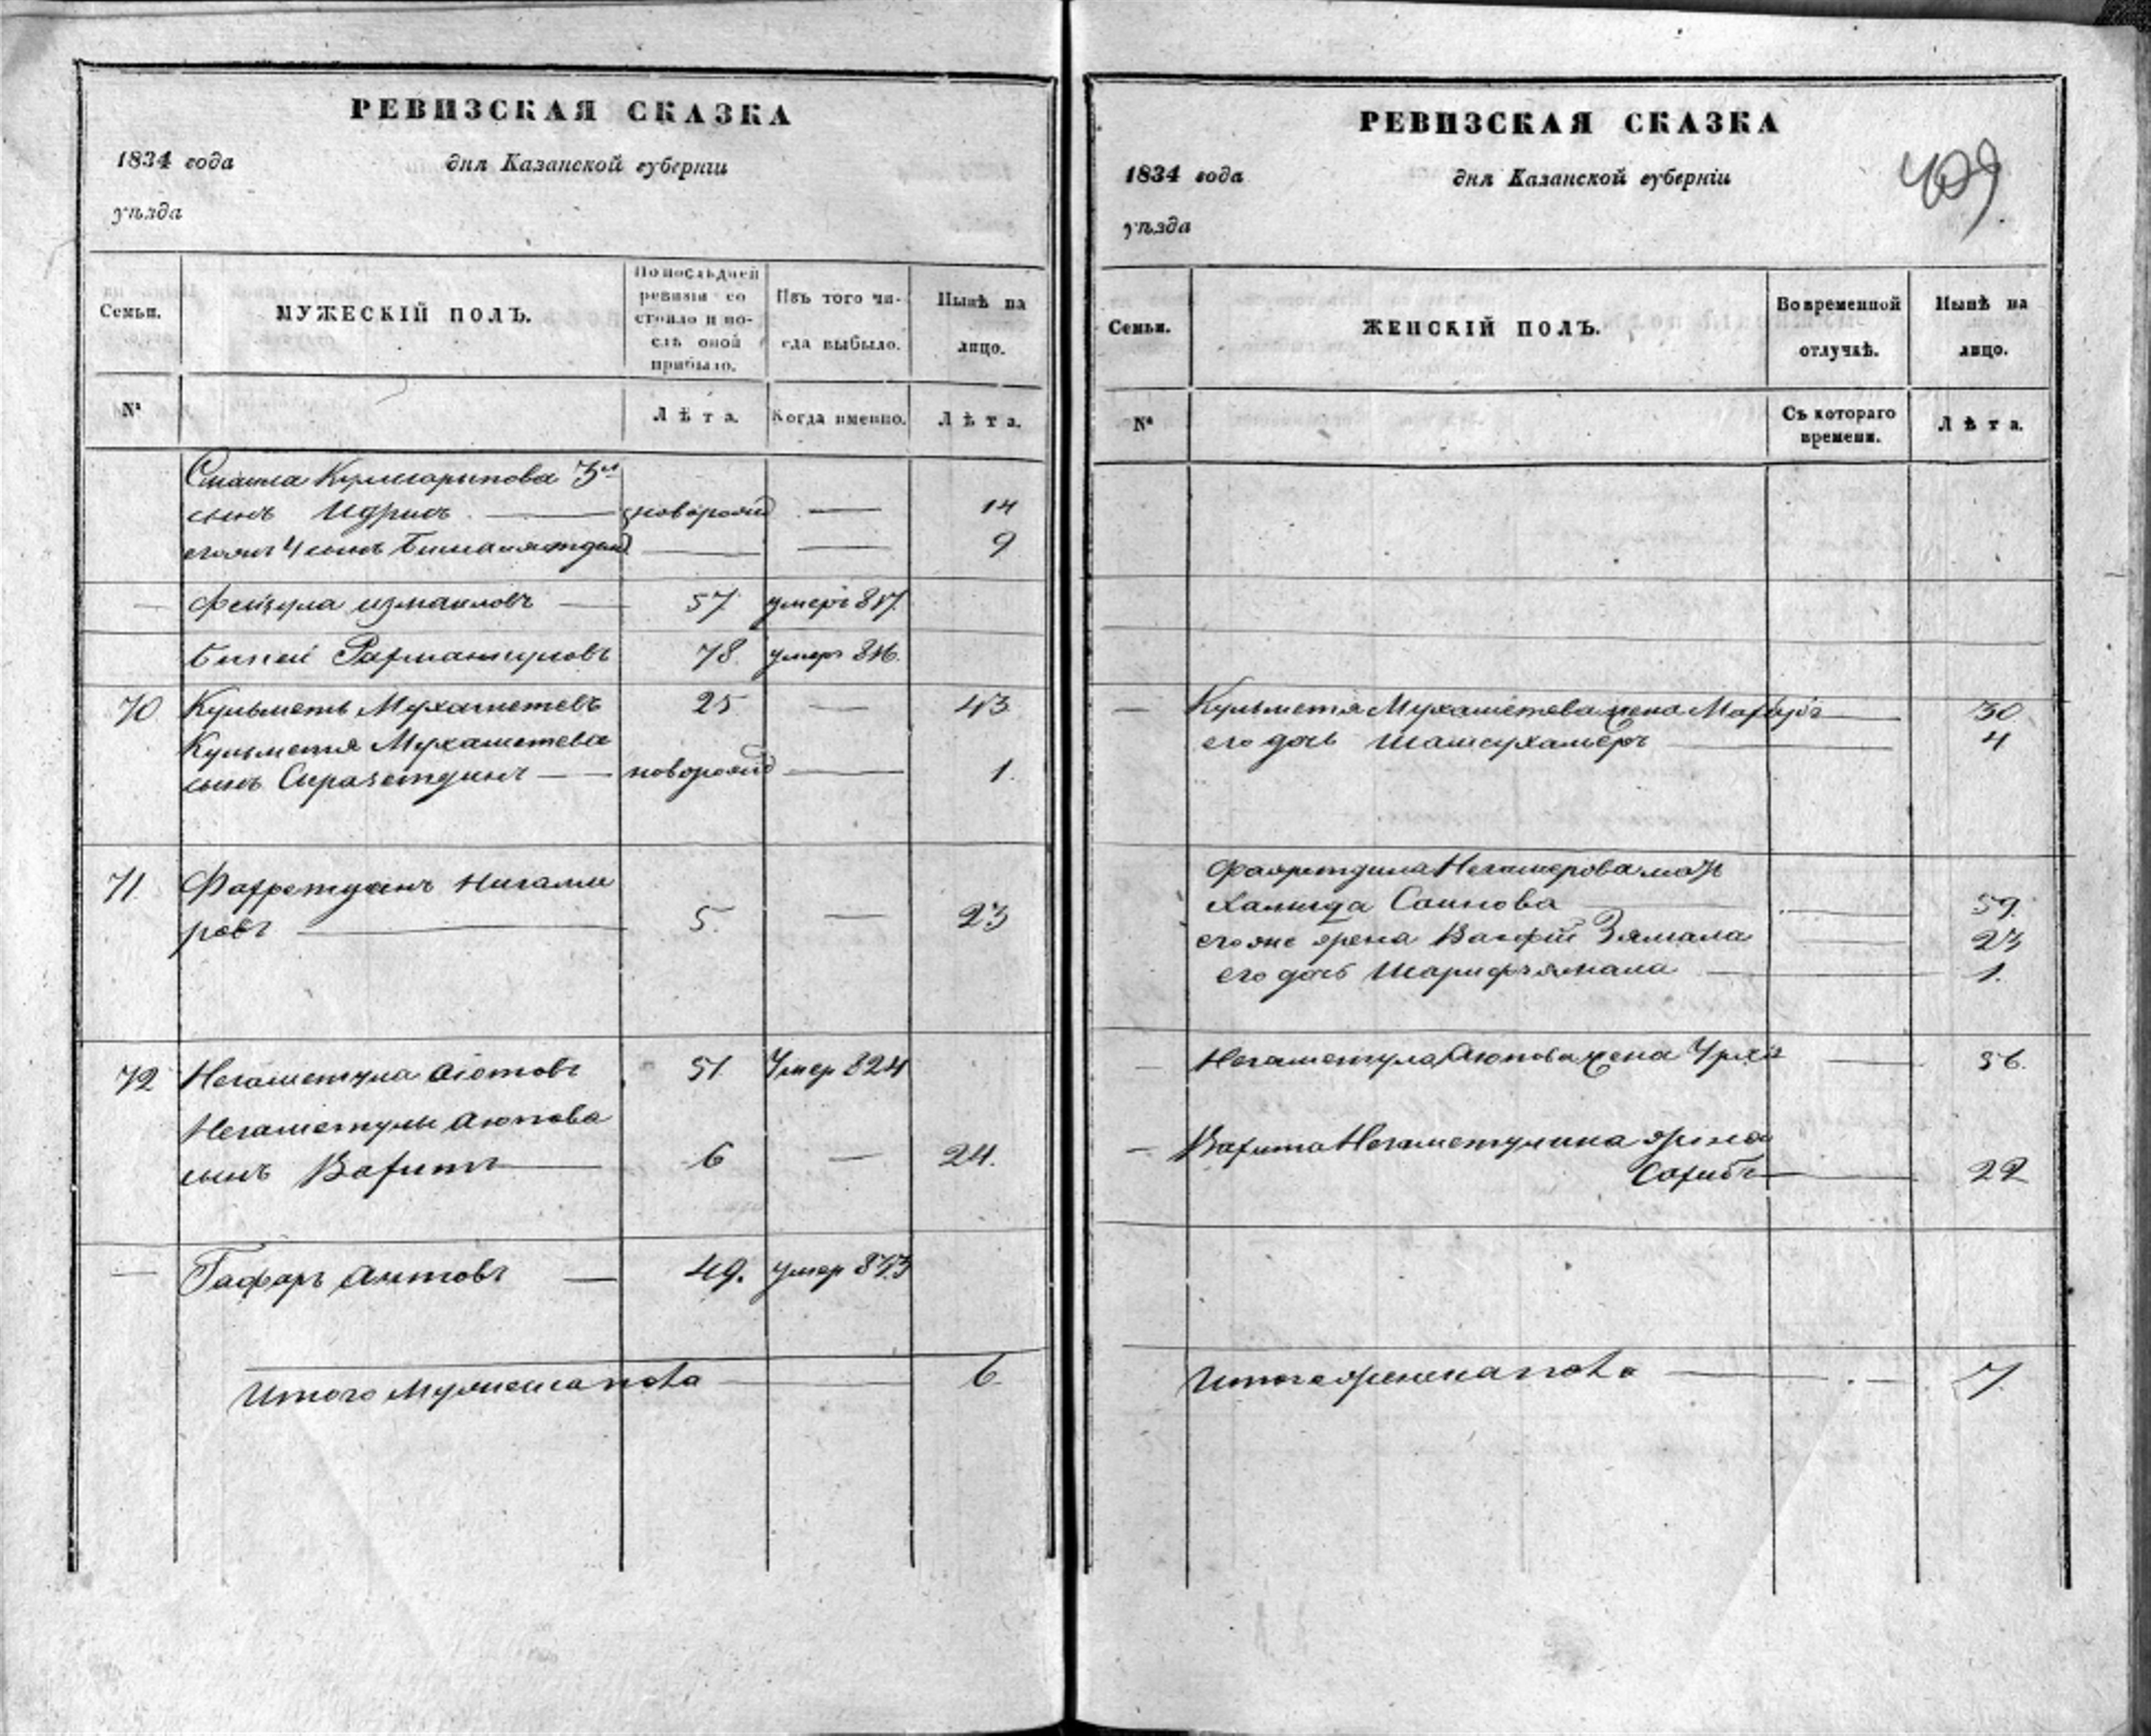 РЕВИЗСКАЯ СКАЗКА
1834 года дня Казанской губернiи
уѣзда
Семьи.
МУЖЕСКIЙ ПОЛЪ.
По послѣдней
ревизiи со
стояло и по-
слѣ оной
прибыло.
Изъ того чи-
сла выбыло.
Нынѣ на
лицо.
№
Лѣта.
Когда именно.
Лѣта.
3й
сынъ Идрисъ — новорожд — 14
егоже 4 сынъ — — 9
— Фейзула Измаиловъ — 57 умеръ 817.
78. умеръ 816.
70 Кульметь Мухаметевъ 25 — 43
Кульметя Мухаметева
сынъ Сиразетдинъ — новорожд — 1.
71. Фахретдинъ Нигаме
ровъ — 5. — 23
72 Негаметула Аютовъ 51 Умер 824
Негаметулы Аюпова
сынъ Вахитъ — 6 — 24.
— Гафаръ Аитовъ — 49. умер 833
Итого Мужеска пола — 6
РЕВИЗСКАЯ СКАЗКА
409.
1834 года дня Казанской губернiи
уѣзда
Семьи.
ЖЕНСКIЙ ПОЛЪ.
Во временной
отлучкѣ.
Нынѣ на
лицо.
№
Съ котораго
времени.
Лѣта.
— Кульметя Мухаметева жена — 30
его дочь — 4
Негамерова мать
Халида Саипова — 59.
его же жена Зямала — 23
его дочь Шарифзямала — 1.
— Негаметула Аюпова жена — 56.
— Вахита Негаметулина жена
Сахибъ — 22
Итого женска пола — 7.